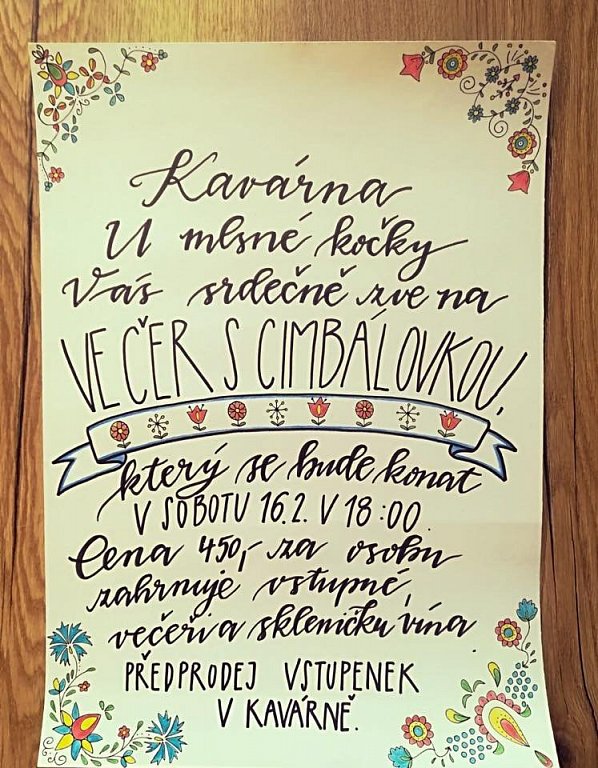 Kavárna
U mlsné kočky
Vás srdečně zve na
VEČER S CIMBÁLOVKOU,
který se bude konat
V SOBOTU 16.2. V 18:00.
Cena 450,- za osobu
zahrnuje vstupné,
večeři a skleničku vína.
PŘEDPRODEJ VSTUPENEK
V KAVÁRNĚ.